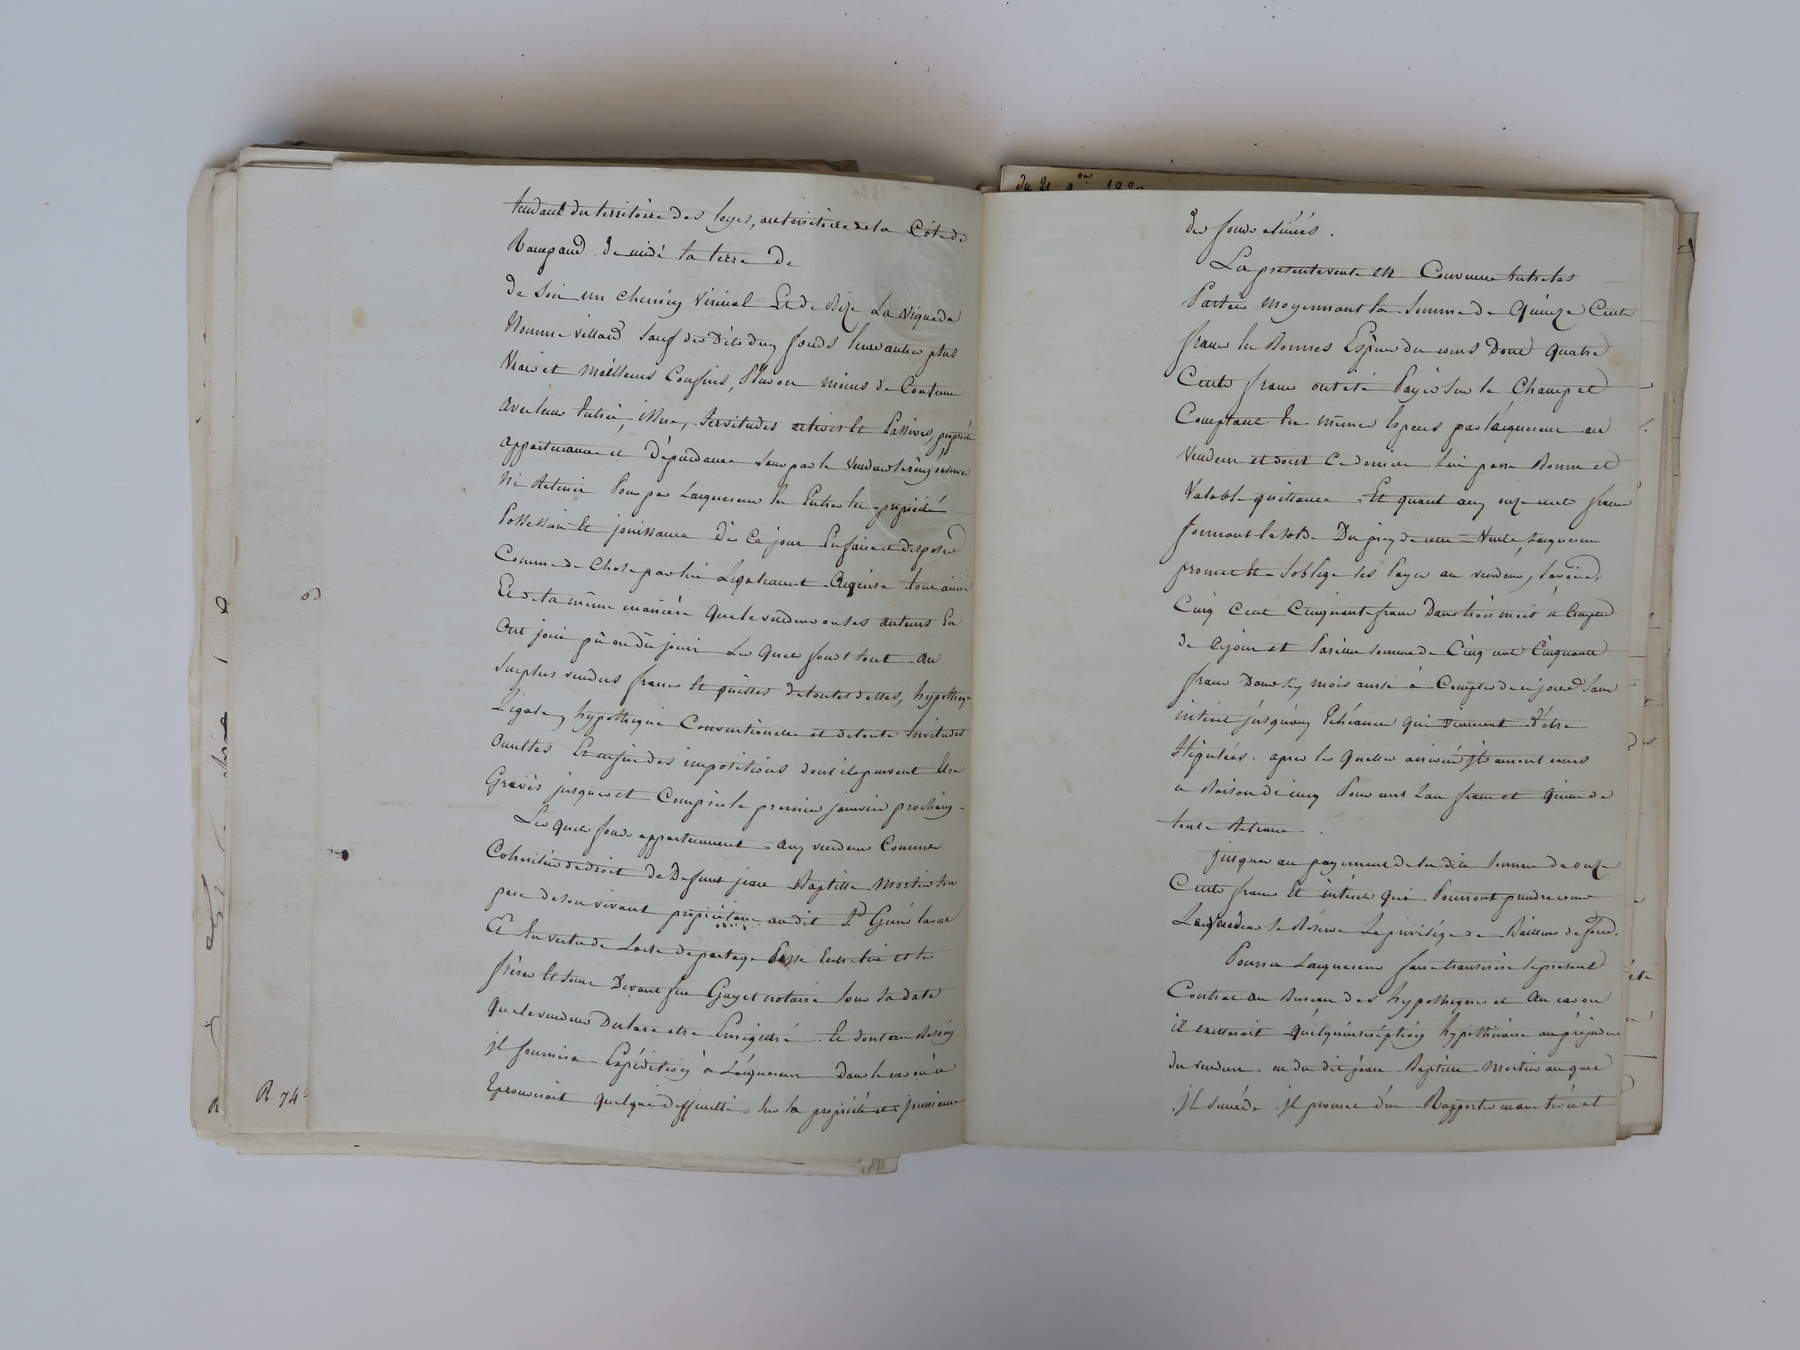 tendant du territoire des loges, au territoire de la Côte de
Rampaud. de midi la terre de
de soir un chemin vicinal Et de Bize La vigne de
Nomme villard Sauf des Dits deux fonds leurs autres plus
Vrais et meilleurs Confins, Plus ou moins de Contenue
avec leurs Entrées, issues, Servitudes actives Et Passives, propriété
appartenance et Dépendance sans par le vendeur s'en rien réserver
Ni Retenir Pour par L'acquereur En Entrer En propriété
Possession Et jouissance Dès Ce jour En faire et Disposer
Comme de Chose par lui Légalement Acquise tout ainsi
Et de la même manière que le vendeur ou ses auteurs En
Ont joui pû ou dû jouir Les quels fonds sont au
Surplus vendus francs Et quittes de toutes dettes, hypothèque
Légale, hypothèque Conventionelle et de toute servitudes
Occultes Et enfin des impositions dont ils peuvent Etre
Grevés jusques et Compris le premier janvier prochain
Les quels fonds appartiennent aux vendeur Comme
Cohéritier de droit de Défunt jean Baptiste Mortier son
pere de son vivant propriétaire au dit St Genis laval
Et En vertu de L'acte de partage Passé Entre lui et les
frères Et sœur Devant feu Guyet notaire Sous sa date
Que le vendeur Déclare etre Enrégistré. Et dont au Besoin
Il fournira Expédition à L'acquereur Dans le cas où il
Eprouverait quelque difficulté Sur la propriété et jouissance
R. 74
du 21 9bre 1820
des fonds aliénés.
La présente vente Est Convenue Entre les
Parties moyennant la Somme de Quinze Cents
francs En Bonnes Espèces du cours Dont quatre
Cents francs ont été Payés Sur le Champ et
Comptant En mêmes Especes par l'acquereur au
Vendeur et dont Ce dernier Lui passe Bonne et
Valable quittance. Et quant aux onze cents francs
formant le solde Du prix de cette Vente, L'acquereur
promet Et s'oblige les Payer au vendeur, savoir,
Cinq Cent Cinquante francs Dans trois mois à Compter
de Ce jour et Pareille somme de Cinq cent Cinquante
francs Dans Six mois aussi à Compter de ce jour sans
intéret jusqu'aux Echéances qui viennent d'être
Stipulées. apres les quelles
a Raison de cinq Pour cent L'an franc et quitte de
toute Retenue.
jusques au payement de la dite Somme de onze
Cents francs Et intérêts qui Pourront prendre cours
Le Vendeur se Réserve Le privilége de Bailleur de fond.
Pourra L'acquereur faire transcrire le présent
Contrat au Bureau des hypothèques et Au cas où
il existerait quelqu'inscription hypothécaire au préjudice
du vendeur ou du dit jean Baptiste Mortier au quel
Il Succéde. Il promet d'en Rapporter main levée et